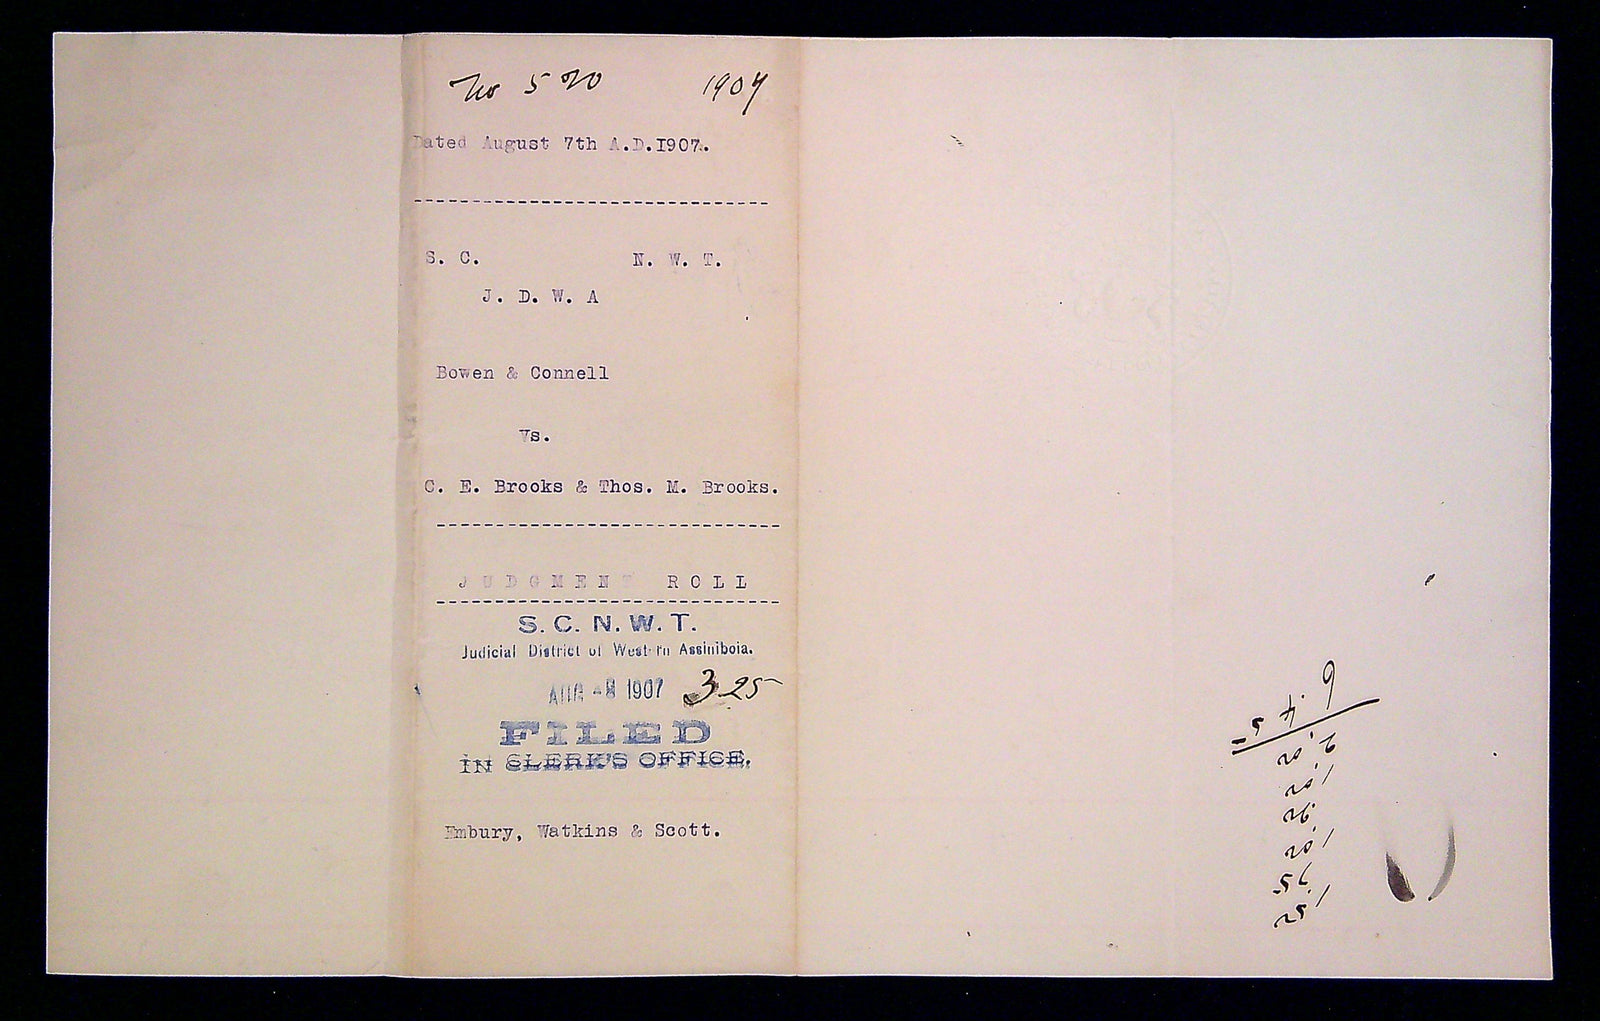 No 520 1907
Dated August 7th A.D.1907.
S. C. N. W. T.
J. D. W. A
Bowen & Connell
Vs.
C. E. Brooks & Thos. M. Brooks.
JUDGMENT ROLL
S. C. N. W. T.
Judicial District of Western Assiniboia.
AUG -8 1907 3.25
FILED
IN CLERK'S OFFICE.
Embury, Watkins & Scott.